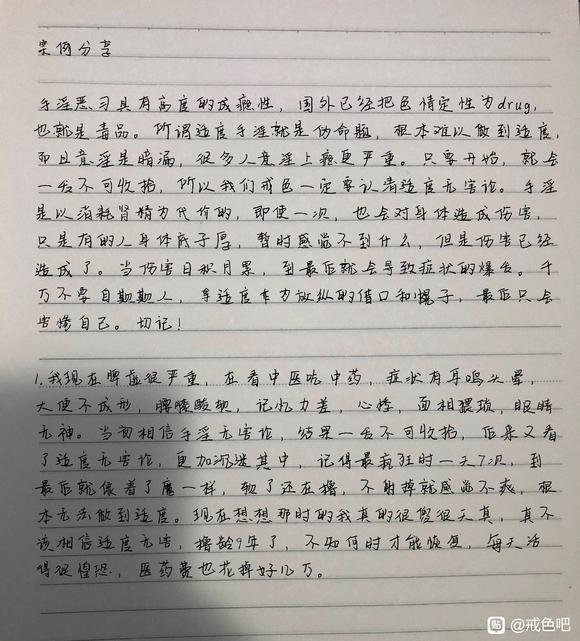 案例分享
手淫恶习具有高度的成瘾性，国外已经把色情定性为drug，
也就是毒品。所谓适度手淫就是伪命题，根本难以做到适度，
而且意淫是暗漏，很多人意淫上瘾更严重。只要开始，就会
一发不可收拾，所以我们戒色一定要认清适度无害论。手淫
是以消耗肾精为代价的，即使一次，也会对身体造成伤害，
只是有的人身体底子厚，暂时感觉不到什么，但是伤害已经
造成了。当伤害日积月累，到最后就会导致症状的爆发。千
万不要自欺欺人，拿适度作为放纵的借口和幌子，最后只会
害惨自己。切记！
1.我现在脾虚很严重，在看中医吃中药，症状有耳鸣头晕，
大便不成形，腰膝酸软，记忆力差，心悸，面相猥琐，眼睛
无神。当初相信手淫无害论，结果一发不可收拾，后来又看
了适度无害论，更加沉迷其中，记得最疯狂时一天7次，到
最后就像着了魔一样，软了还在撸，不射掉就感觉不爽，根
本无法做到适度。现在想想那时的我真的很傻很天真，真不
该相信适度无害，撸龄9年了，不知何时才能恢复，每天活
得很惶恐，医药费也花掉好几万。
贴 @戒色吧